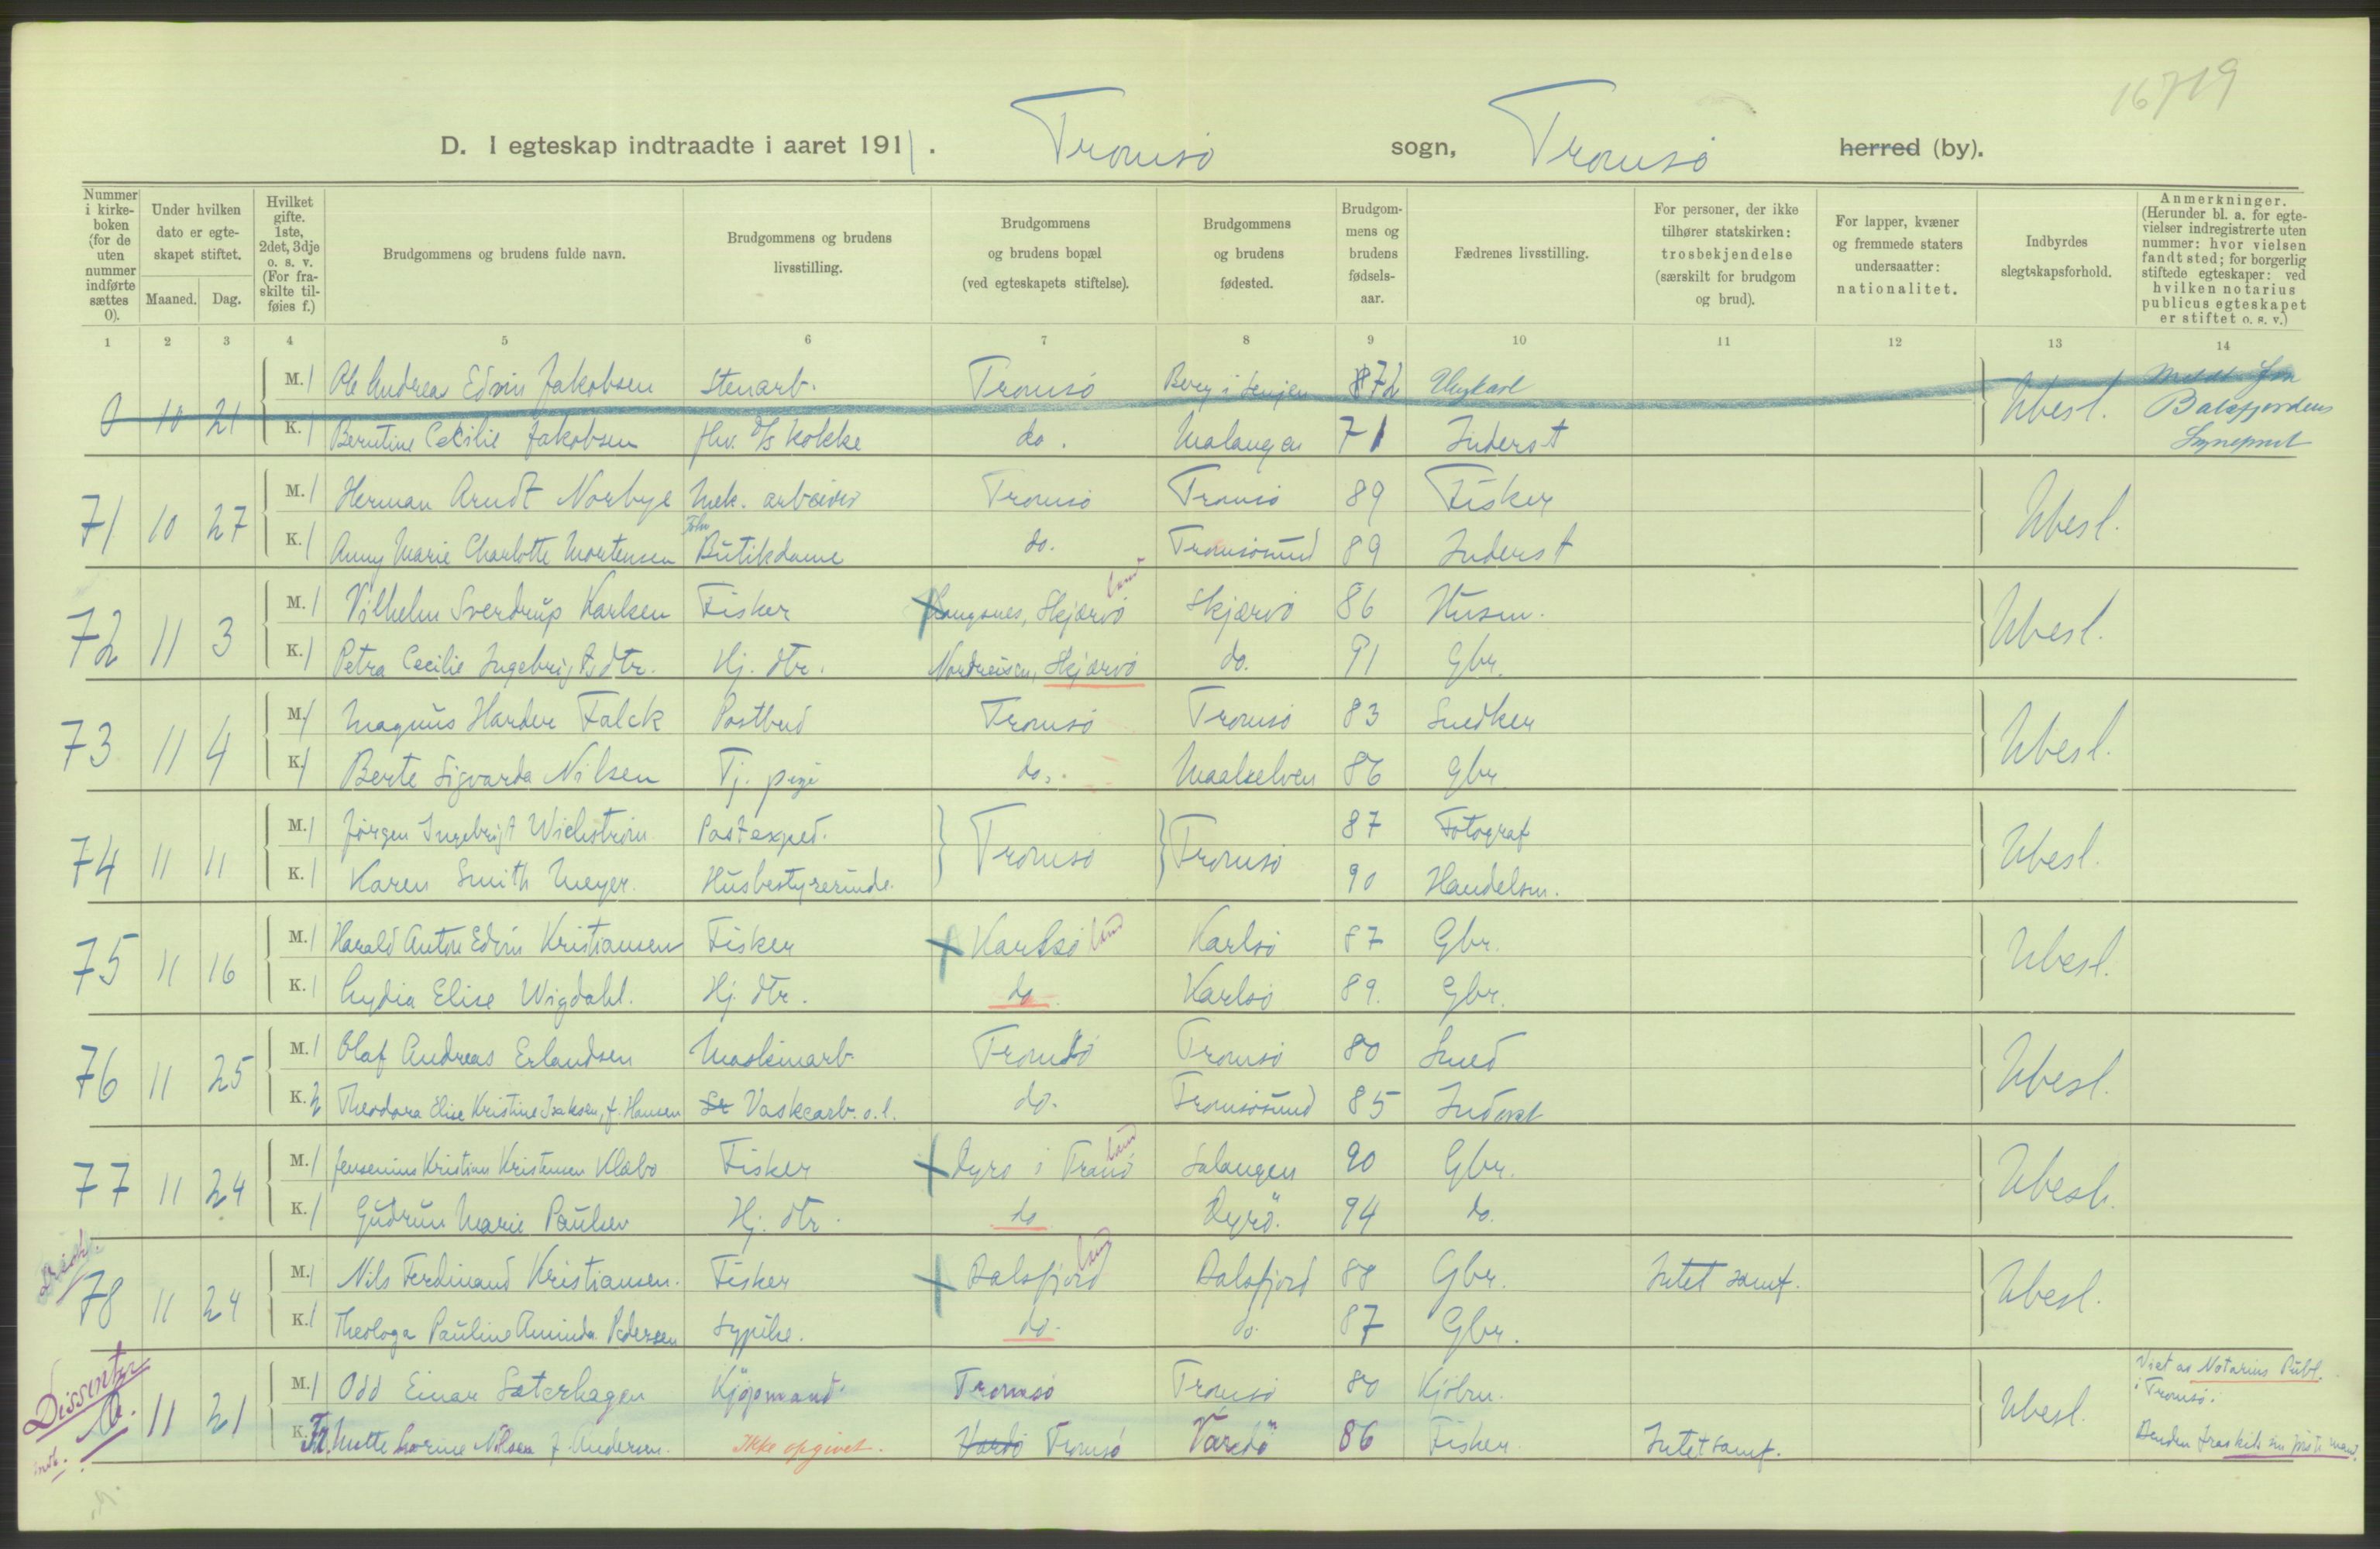 16719
D. I egteskap indtraadte i aaret 1911. Tromsö sogn, Tromsö herred (by).
Nummer i kirkeboken (for de uten nummer indførte sættes 0).
Under hvilken dato er egteskapet stiftet.
Maaned. Dag.
Hvilket gifte. 1ste, 2det, 3dje o. s. v. (For fraskilte tilføies f.)
Brudgommens og brudens fulde navn.
Brudgommens og brudens livsstilling.
Brudgommens og brudens bopæl (ved egteskapets stiftelse).
Brudgommens og brudens fødested.
Brudgommens og brudens fødselsaar.
Fædrenes livsstilling.
For personer, der ikke tilhører statskirken: trosbekjendelse (særskilt for brudgom og brud).
For lapper, kvæner og fremmede staters undersaatter: nationalitet.
Indbyrdes slegtskapsforhold.
Anmerkninger. (Herunder bl. a. for egtevielser indregistrerte uten nummer: hvor vielsen fandt sted; for borgerlig stiftede egteskaper: ved hvilken notarius publicus egteskapet er stiftet o. s. v.)
1 2 3 4 5 6 7 8 9 10 11 12 13 14
0 10 21 M. 1 Ole Andreas Edvin Jakobsen Stenarb. Tromsö Berg i Senjen 872 Ungkarl Ubesl.
K. 1 Berntine Cecilie Jakobsen fhv. D/S kokke do. Malangen 71 Inderst
Balsfjordens
71 10 27 M. 1 Herman Arndt Norbye Mek. arbeider Tromsö Tromsö 89 Fisker Ubesl.
K. 1 Anny Marie Charlotte Mortensen Butikdame do. Tromsösund 89 Inderst
72 11 3 M. 1 Vilhelm Sverdrup Karlsen Fisker Langsnes, Skjærvö land Skjærvö 86 Husm. Ubesl.
K. 1 Petra Cecilie Ingebrigtsdtr. Hj. dtr. Nordreisen, Skjærvö do. 91 Gbr.
73 11 4 M. 1 Magnus Harder Falck Postbud Tromsö Tromsö 83 Snedker Ubesl.
K. 1 Berte Sigvarda Nilsen Tj. pige do. Maalselven 86 Gbr
74 11 11 M. 1 Jörgen Ingebrigt Wichström Postexped. Tromsö Tromsö 87 Fotograf Ubesl.
K. 1 Karen Smith Meyer. Husbestyrerinde. 90 Handelsm.
75 11 16 M. 1 Harald Anton Edvin Kristiansen Fisker Karlsö land Karlsö 87 Gbr. Ubesl.
K. 1 Lydia Elise Wigdahl. Hj. dtr. do. Karlsö 89. Gbr.
76 11 25 M. 1 Olaf Andreas Erlandsen Maskinarb. Tromsö Tromsö 80 Smed Ubesl.
K. 2 Theodora Elise Kristine Isaksen, f. Hansen Vaskearb. o.l. do. Tromsösund 85 Inderst
77 11 24 M. 1 Jensenius Kristian Kristensen Klæbo Fisker Dyrö i Tranö land Salangen 90 Gbr. Ubesl.
K. 1 Gudrun Marie Paulsen Hj. dtr. do Dyrö. 94 do.
78 11 24 M. 1 Nils Ferdinand Kristiansen. Fisker Balsfjord land Balsfjord 88 Gbr. Intet samf. Ubesl.
K. 1 Theologa Pauline Aminda Pedersen Sypike. do. do. 87 Gbr.
Dissenter
0. 11 21 M. 1 Odd Einar Sæterhagen Kjöpmand Tromsö Tromsö 80 Kjöbm. Ubesl. Viet av Notarius Publ. i Tromsö.
K. Fr. Mette Lorine Nilsen f. Andersen. Ikke opgivet. Vardö Tromsö Vardö 86 Fisker. Intet samf. Bruden fraskilt sin förste mand.